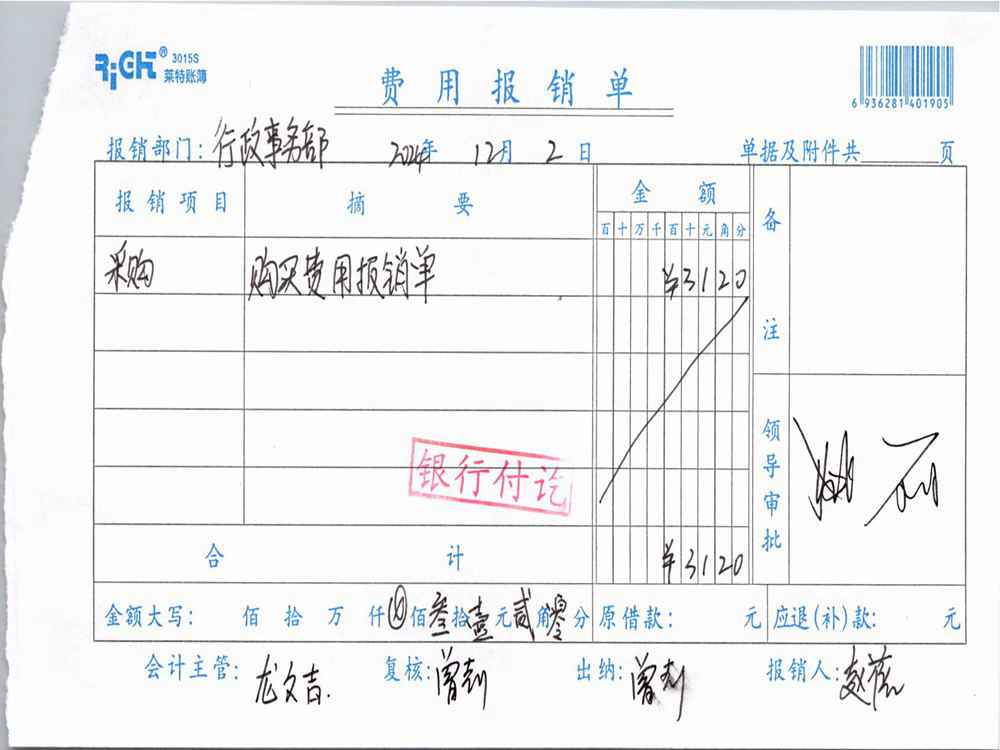 RiGHT® 3015S
莱特账簿
费用报销单
6 936281 401905
报销部门：行政事务部 2024年 12月 2日 单据及附件共 页
报销项目 摘要 金额 备注
百十万千百十元角分
采购 购买费用报销单 ¥3120
银行付讫
领导审批
合计 ¥3120
金额大写： 佰 拾 万 仟 佰叁拾壹元贰角零分 原借款： 元 应退(补)款： 元
会计主管：龙文吉. 复核： 出纳： 报销人：